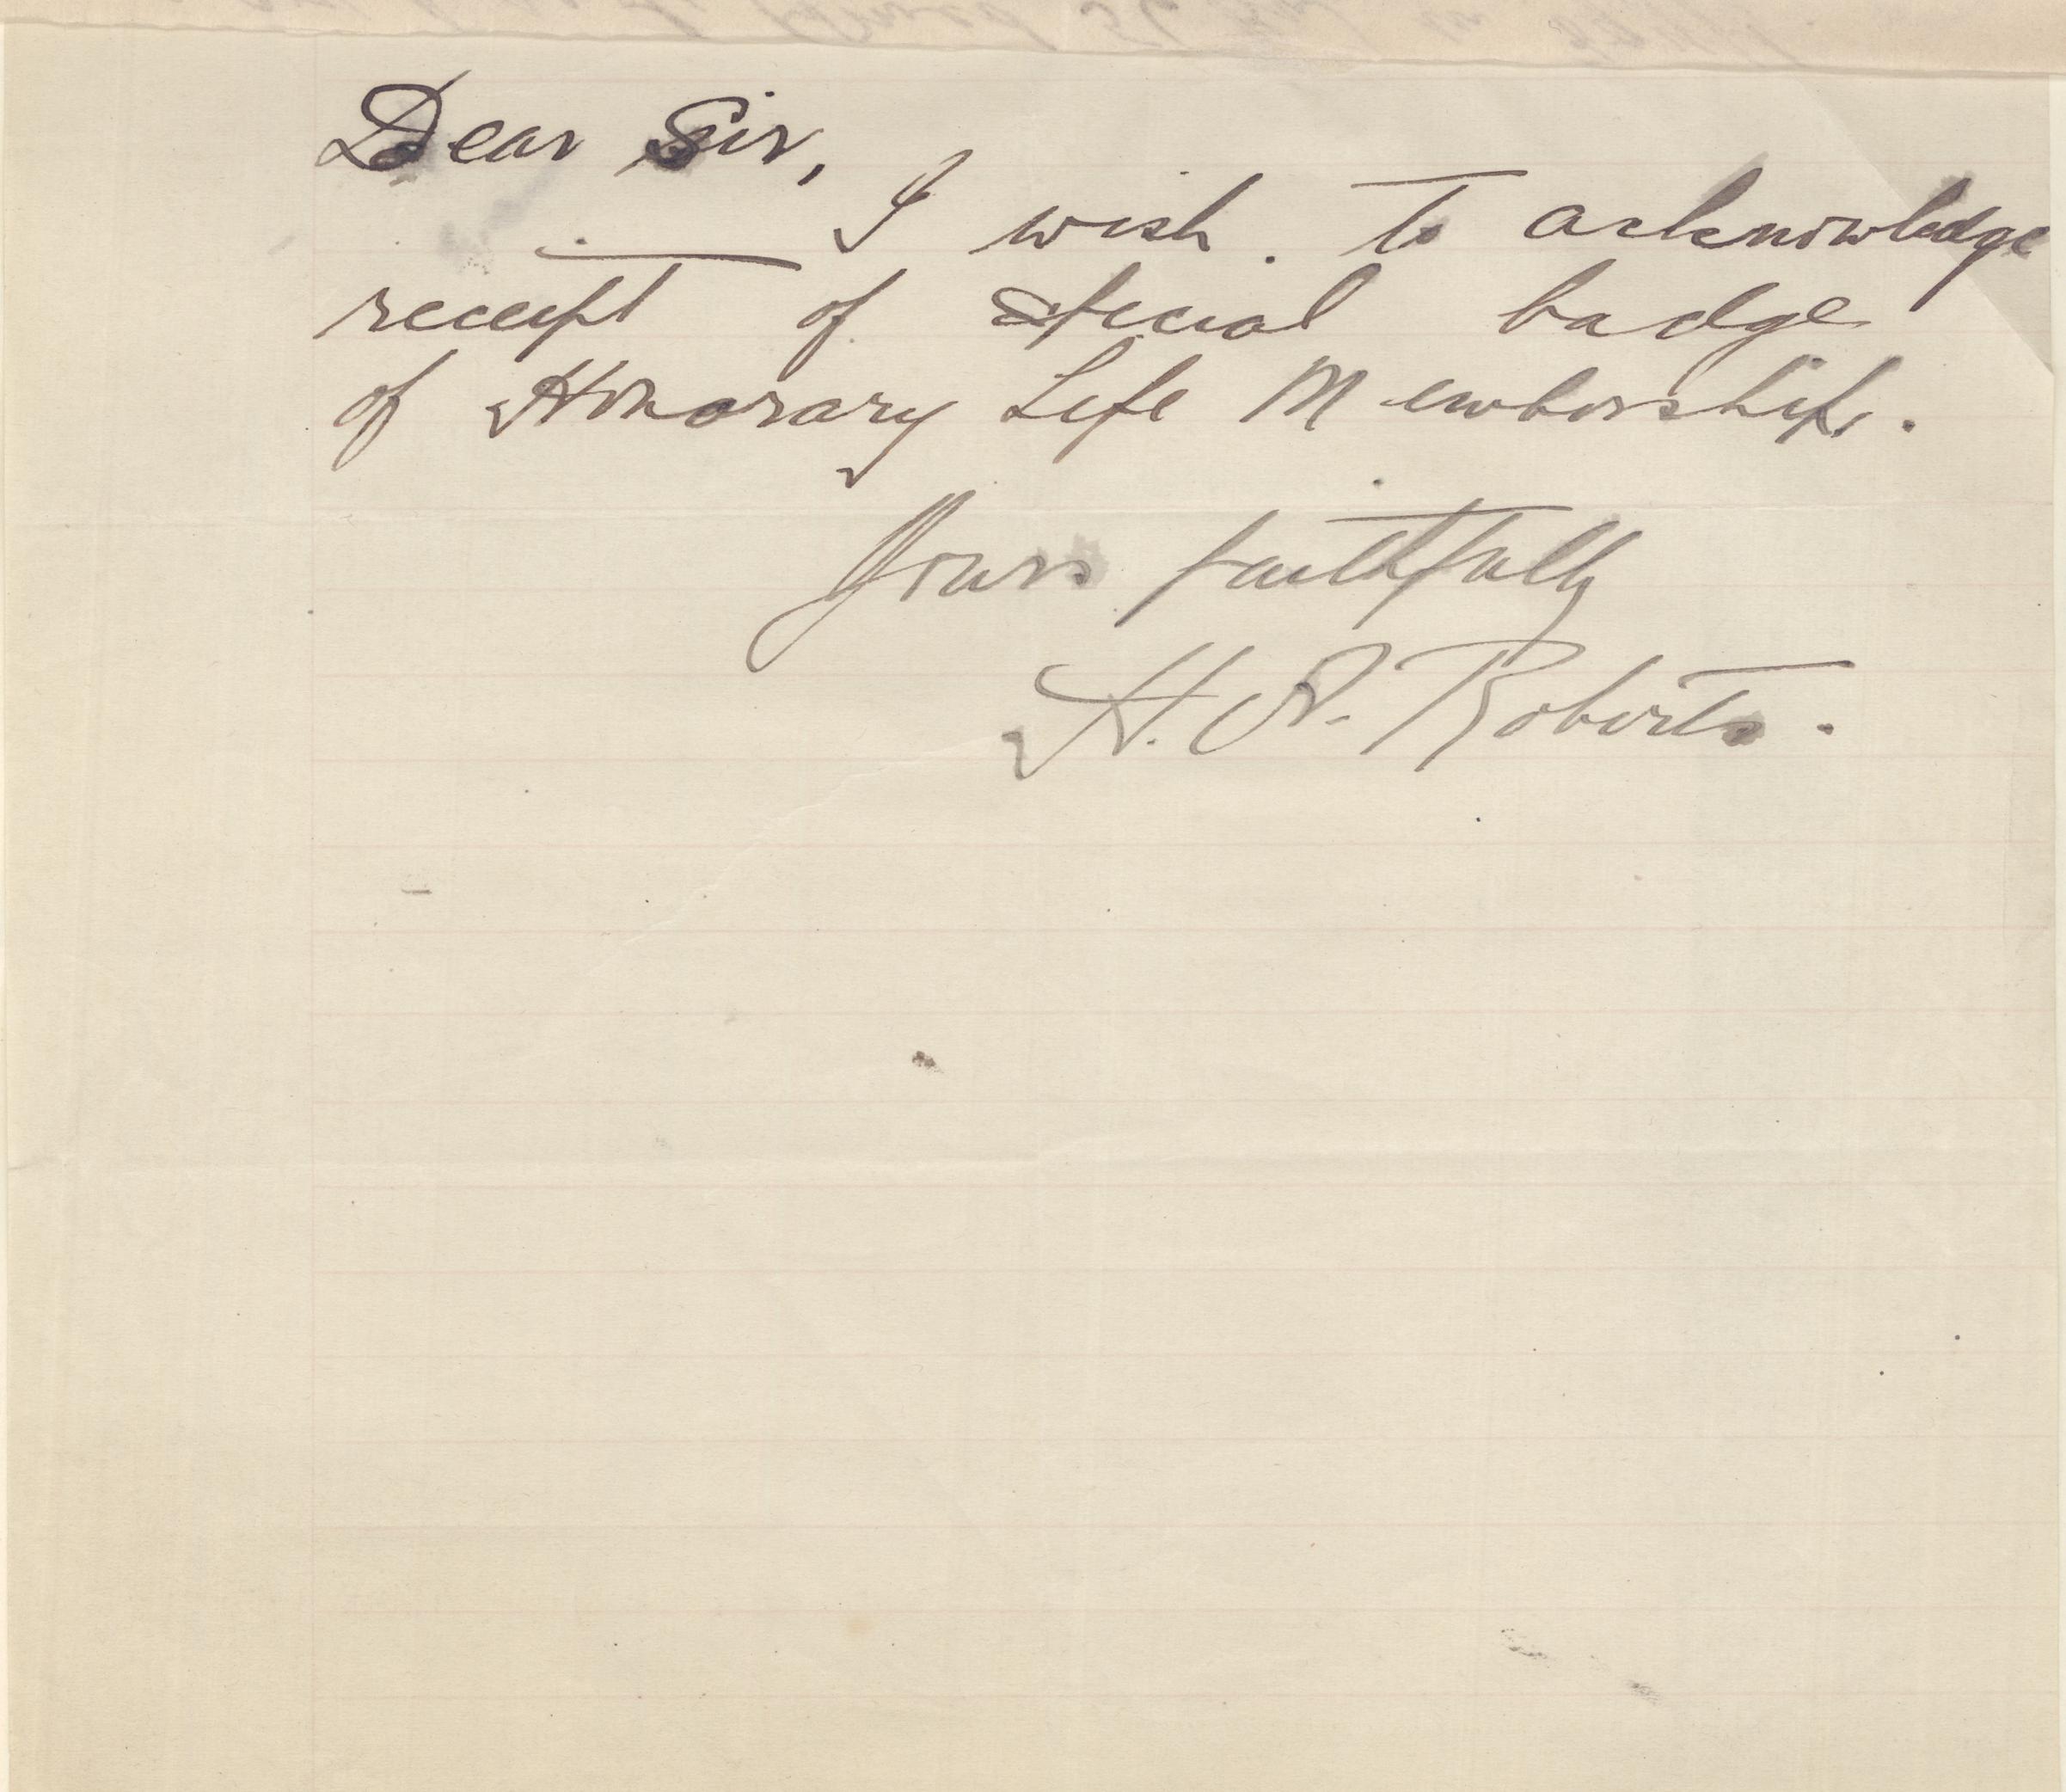 Dear Sir,
I wish to acknowledge
receipt of special badge
of Honorary Life Membership.
Yours faithfully
H. A. Roberts.